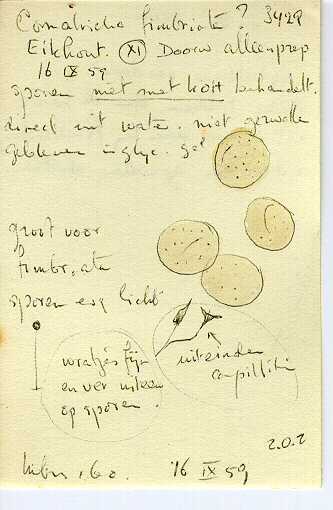 Comatricha fimbriata? 3429
Eikhout. (XI) Doorw alleen prep
16 IX 59
sporen niet met KOH behandelt.
direct uit water. niet gezwollen
gebleven in glyc. gel
groot voor
fimbriata
sporen erg licht
wratjes fijn
en ver uiteen
op sporen.
uiteinden
capillitia
16 IX 59